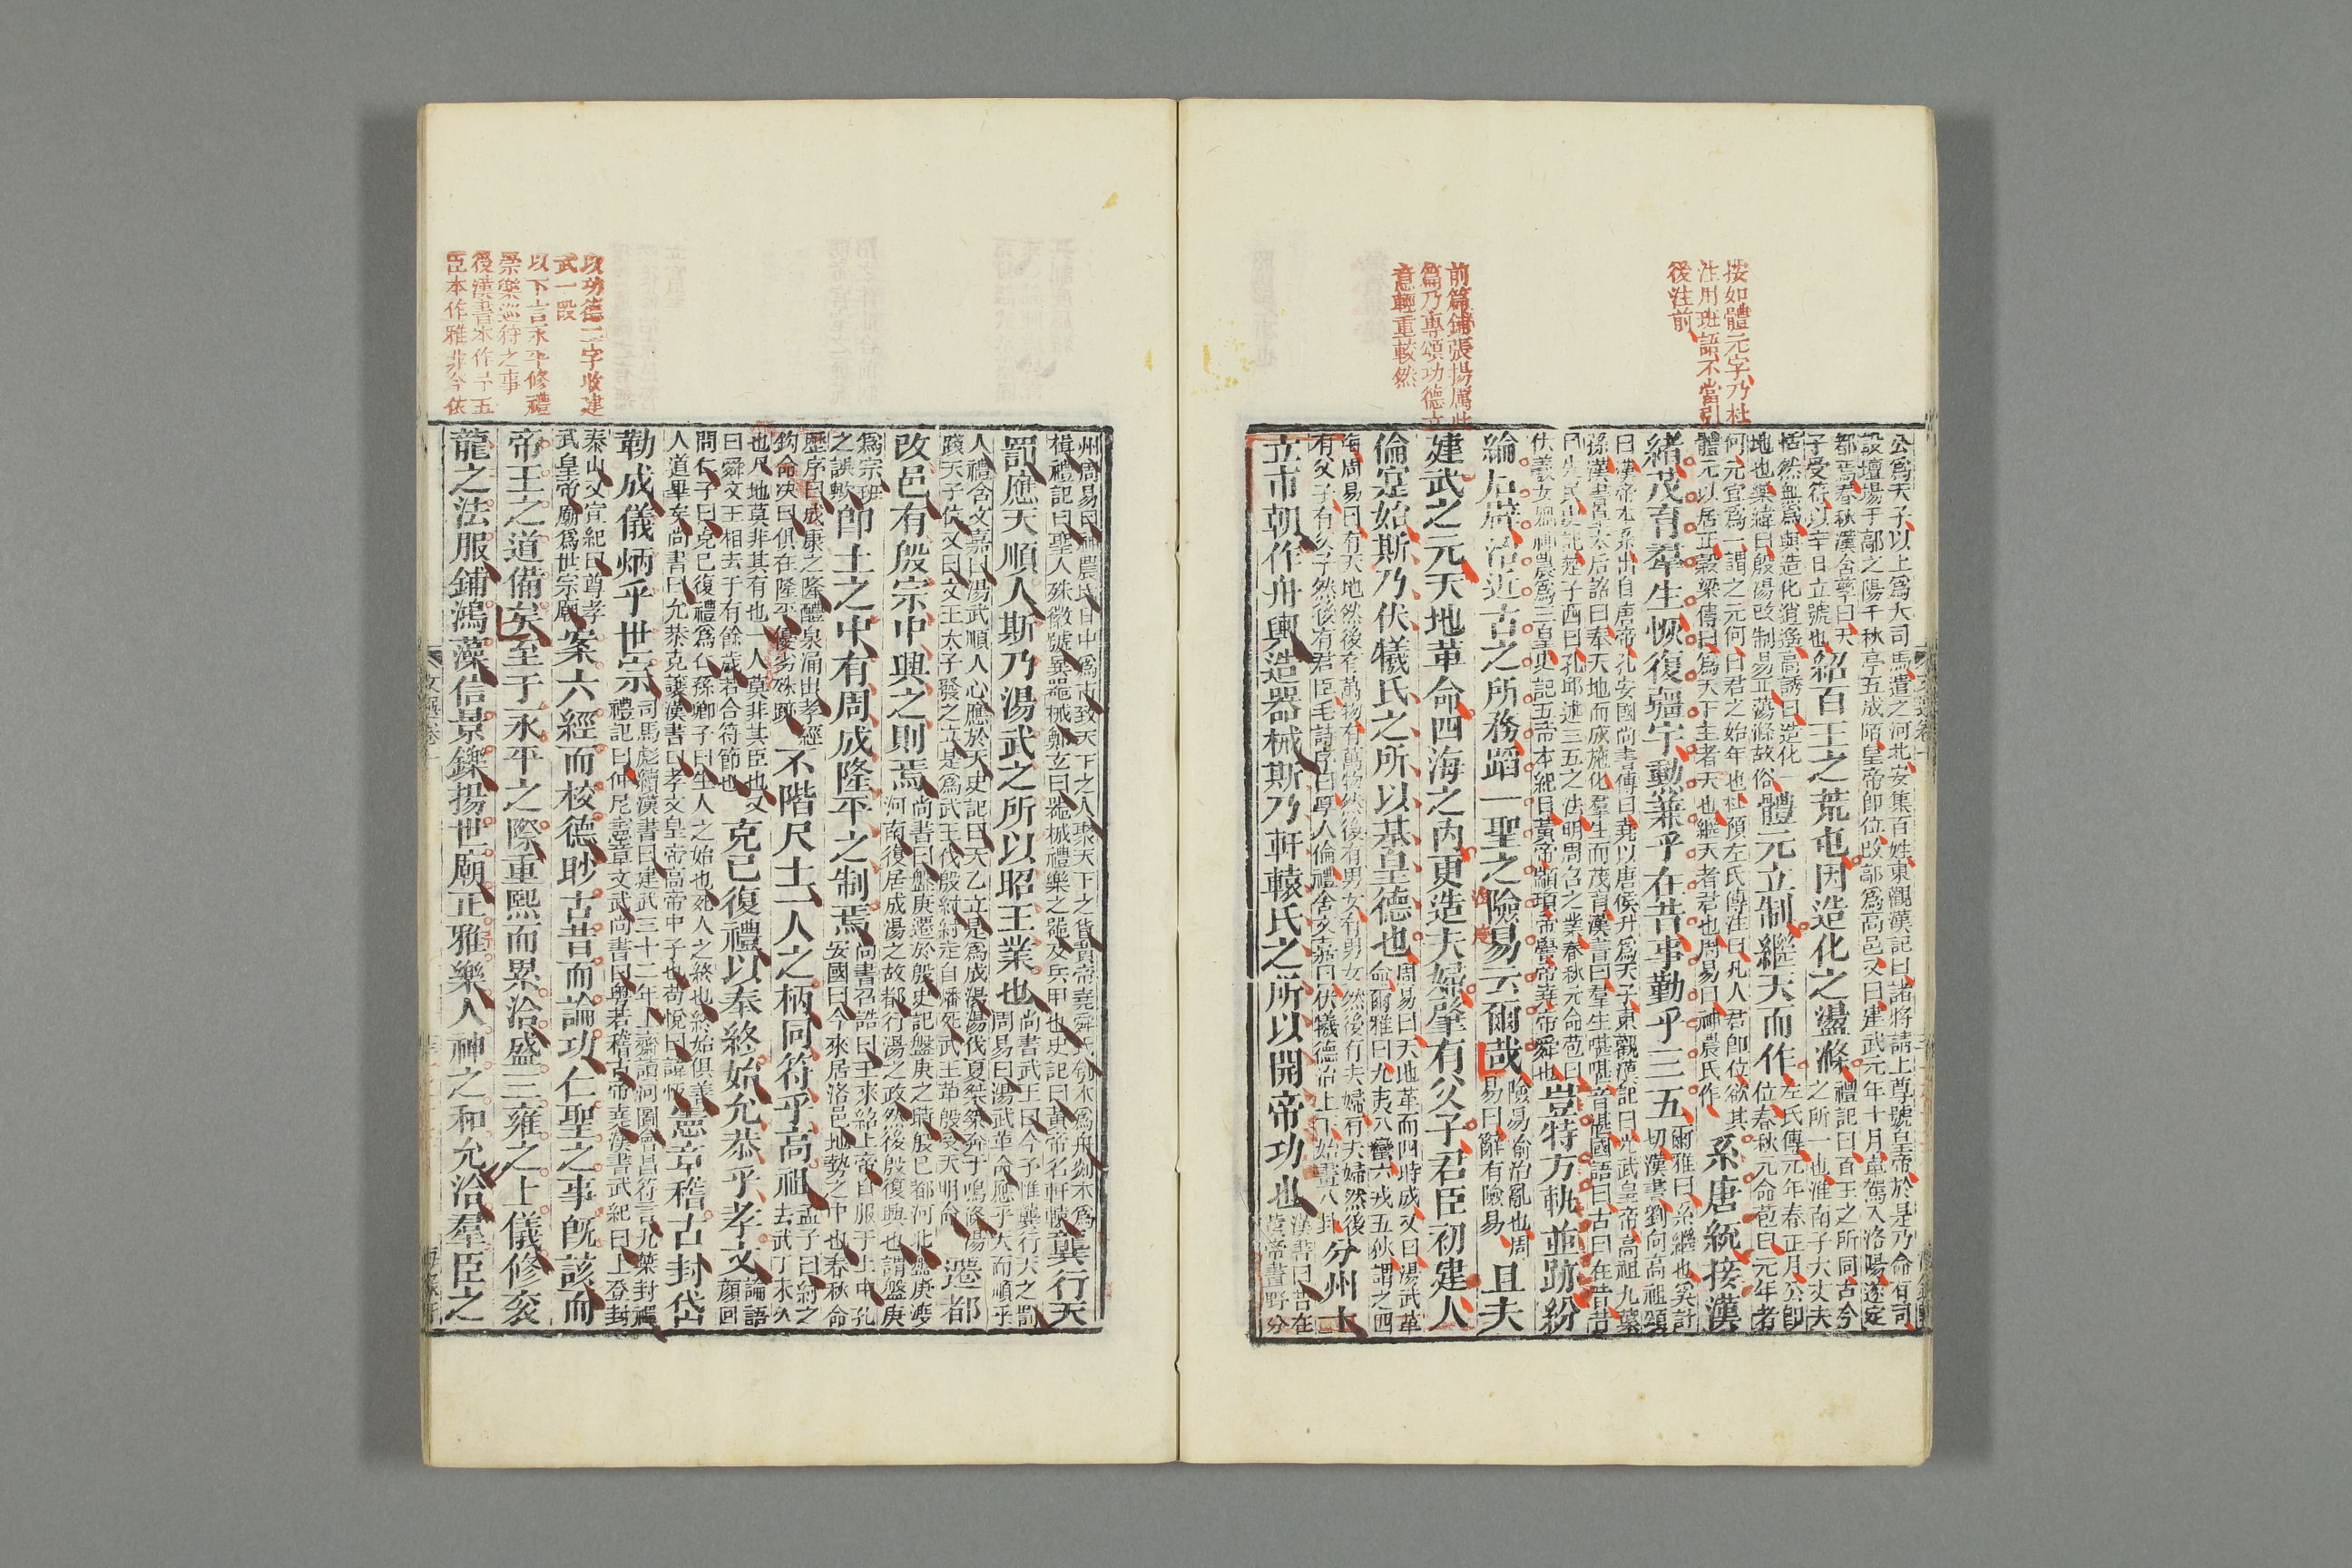 按如體元字乃杜
注用班語不當引
後注前
前篇鋪張揚厲此
篇乃專頌功德立
意輕重較然
公爲天子以上爲大司馬遣之河北安集百姓東觀漢記曰諸將請上尊號皇帝於是乃命有司
設壇場于鄗之陽千秋亭五成陌皇帝卽位改鄗爲高邑又曰建武元年十月車駕入洛陽遂定
都焉春秋漢含孳曰天
子受符以辛日立號也
紹百王之荒屯因造化之盪滌
禮記曰百王之所同古今
之所一也淮南子大丈夫
恬然無爲與造化逍遙高誘曰造化
地也樂緯曰殷湯改制易正蕩滌故俗
體元立制繼天而作
左氏傳元年春正月公卽
位春秋元命苞曰元年者
何元宜爲一謂之元何曰君之始年也杜預左氏傳注曰凡人君卽位欲其
體元以居正穀梁傳曰爲天下主者天也繼天者君也周易曰神農氏作
系唐統接漢
緒茂育羣生恢復疆宇勳兼乎在昔事勤乎三五
爾雅曰系繼也奚計
切漢書劉向高祖頌
曰漢帝本系出自唐帝孔安國尚書傳曰堯以唐侯升爲天子東觀漢記曰光武皇帝高祖九葉
孫漢書曰太后詔曰奉天地而成施化羣生而茂育漢書曰羣生嘽嘽國語曰古曰在昔昔
曰先民史記楚子西曰孔邱述三五之法明周召之業春秋元命苞曰
伏羲女媧神農爲三皇史記五帝本紀曰黃帝顓頊帝嚳帝堯帝舜也
豈特方軌並跡紛
綸后辟治近古之所務蹈一聖之險易云爾哉
險易喻治亂也周
易曰辭有險易
且夫
建武之元天地革命四海之內更造夫婦肇有父子君臣初建人
倫寔始斯乃伏犧氏之所以基皇德也
周易曰天地革而四時成又曰湯武革
命爾雅曰九夷八蠻六戎五狄謂之四
海周易曰有天地然後有萬物有萬物然後有男女有男女然後有夫婦有夫婦然後
有父子有父子然後有君臣毛詩序曰厚人倫禮含文嘉曰伏犧德洽上下始畫八卦
分州土
立市朝作舟輿造器械斯乃軒轅氏之所以開帝功也
漢書曰昔在
黃帝畫野分
以功德二字收建
武一段
以下言永平修禮
崇樂巡狩之事
後漢書本作予五
臣本作雅非今依
州周易曰神農氏日中爲市致天下之人聚天下之貨黃帝堯舜氏刳木爲舟剡木爲
楫禮記曰聖人殊徽號異器械鄭玄曰器械禮樂之器及兵甲也史記曰黃帝名軒轅
龔行天
罰應天順人斯乃湯武之所以昭王業也
尚書武王曰今予惟龔行天之罰
周易曰湯武革命應乎天而順乎
人禮含文嘉曰湯武順人心應於天史記曰天乙立是爲成湯湯伐夏桀桀奔于鳴條湯
踐天子位又曰文王太子發之立是爲武王伐殷紂紂走自燔死武王革殷受天明命
遷都
改邑有殷宗中興之則焉
尚書曰盤庚遷於殷史記盤庚之時殷已都河北盤庚渡
河南復居成湯之故都行湯之政然後殷復興也謂盤庚
爲宗班
之誤歟
卽土之中有周成隆平之制焉
尚書召誥曰王來紹上帝自服于土中孔
安國曰今來居洛邑地勢之中也春秋命
歷序曰成康之隆醴泉涌出孝經
鉤命決曰俱在隆平優劣殊跡
不階尺土一人之柄同符乎高祖
孟子曰紂之
去武丁未久
也尺地莫非其有也一人莫非其臣也又
曰舜文王相去于有餘歲若合符節也
克已復禮以奉終始允恭乎孝文
論語
顏回
問仁子曰克已復禮爲仁孫卿子曰生人之始也死人之終也終始俱善
人道畢矣尚書曰允恭克讓漢書曰孝文皇帝高帝中子也荀悅曰諱恆
憲章稽古封岱
勒成儀炳乎世宗
禮記曰仲尼憲章文武尚書曰粤若稽古帝堯漢書武紀曰上登封
司馬彪續漢書曰建武三十二年上齋讀河圖會昌符言九葉封禪
泰山又宣紀曰尊孝
武皇帝廟爲世宗廟
案六經而校德眇古昔而論功仁聖之事旣該而
帝王之道備矣至于永平之際重熙而累洽盛三雍之上儀修袞
龍之法服鋪鴻藻信景鑠揚世廟正雅樂人神之和允洽羣臣之
文選卷一